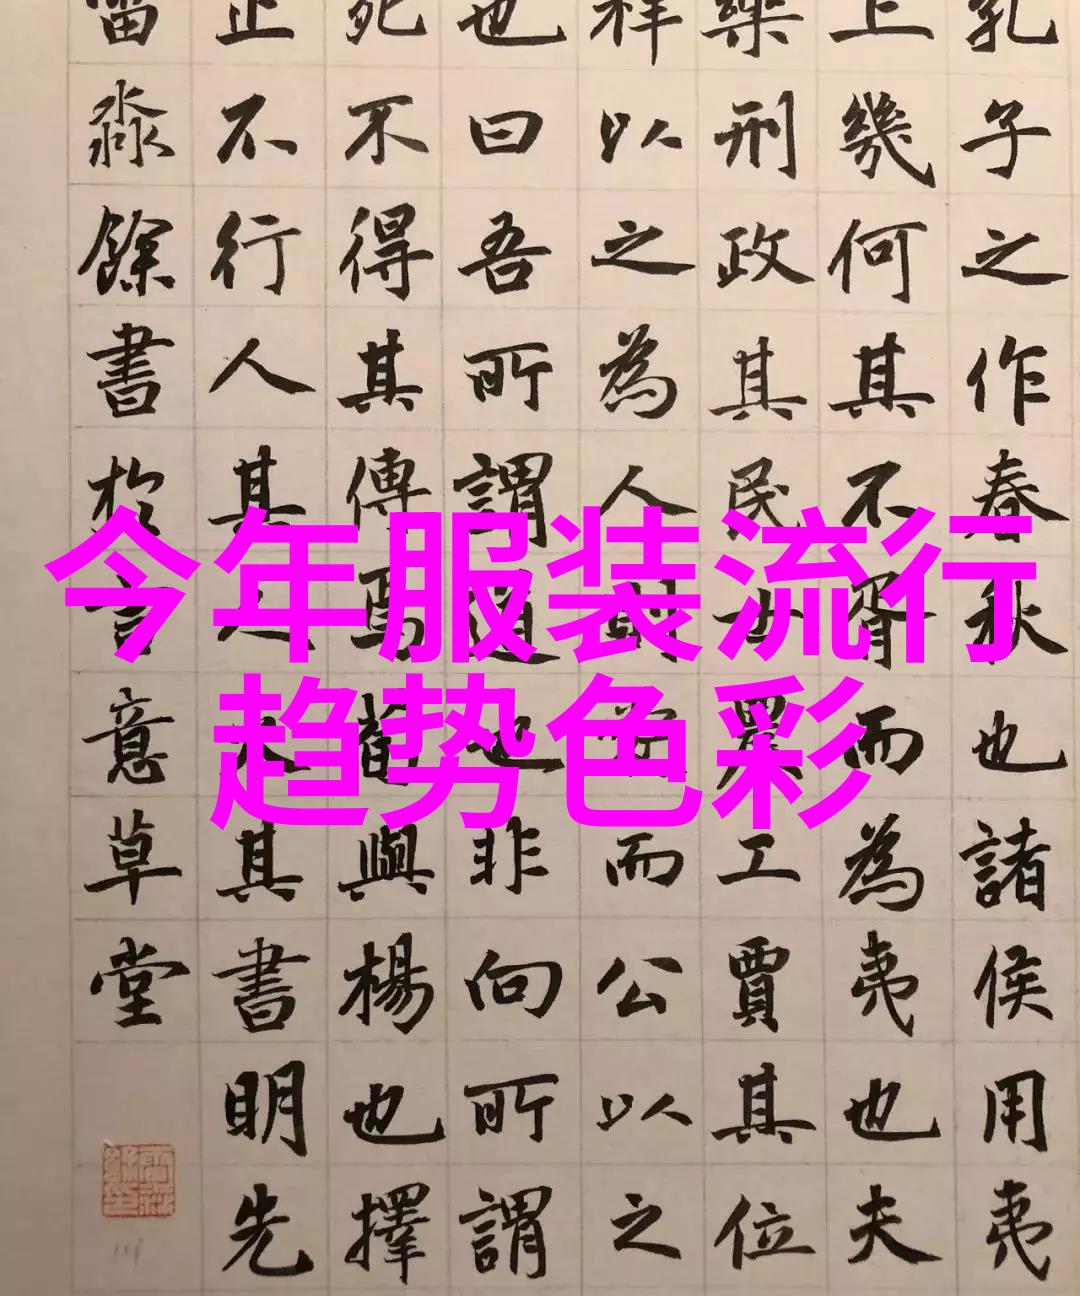 孔子之作春秋也諸侯用夷
上幾何其不胥而為夷也夫
樂刑政其民士農工賈其位
祥以之為人則愛而公以之
也曰吾所謂道也非向所謂
死不得其傳焉荀與楊也擇
止不行人其人火其書明先
雷淼餘書於言意草堂
今年服装流行
趋势色彩